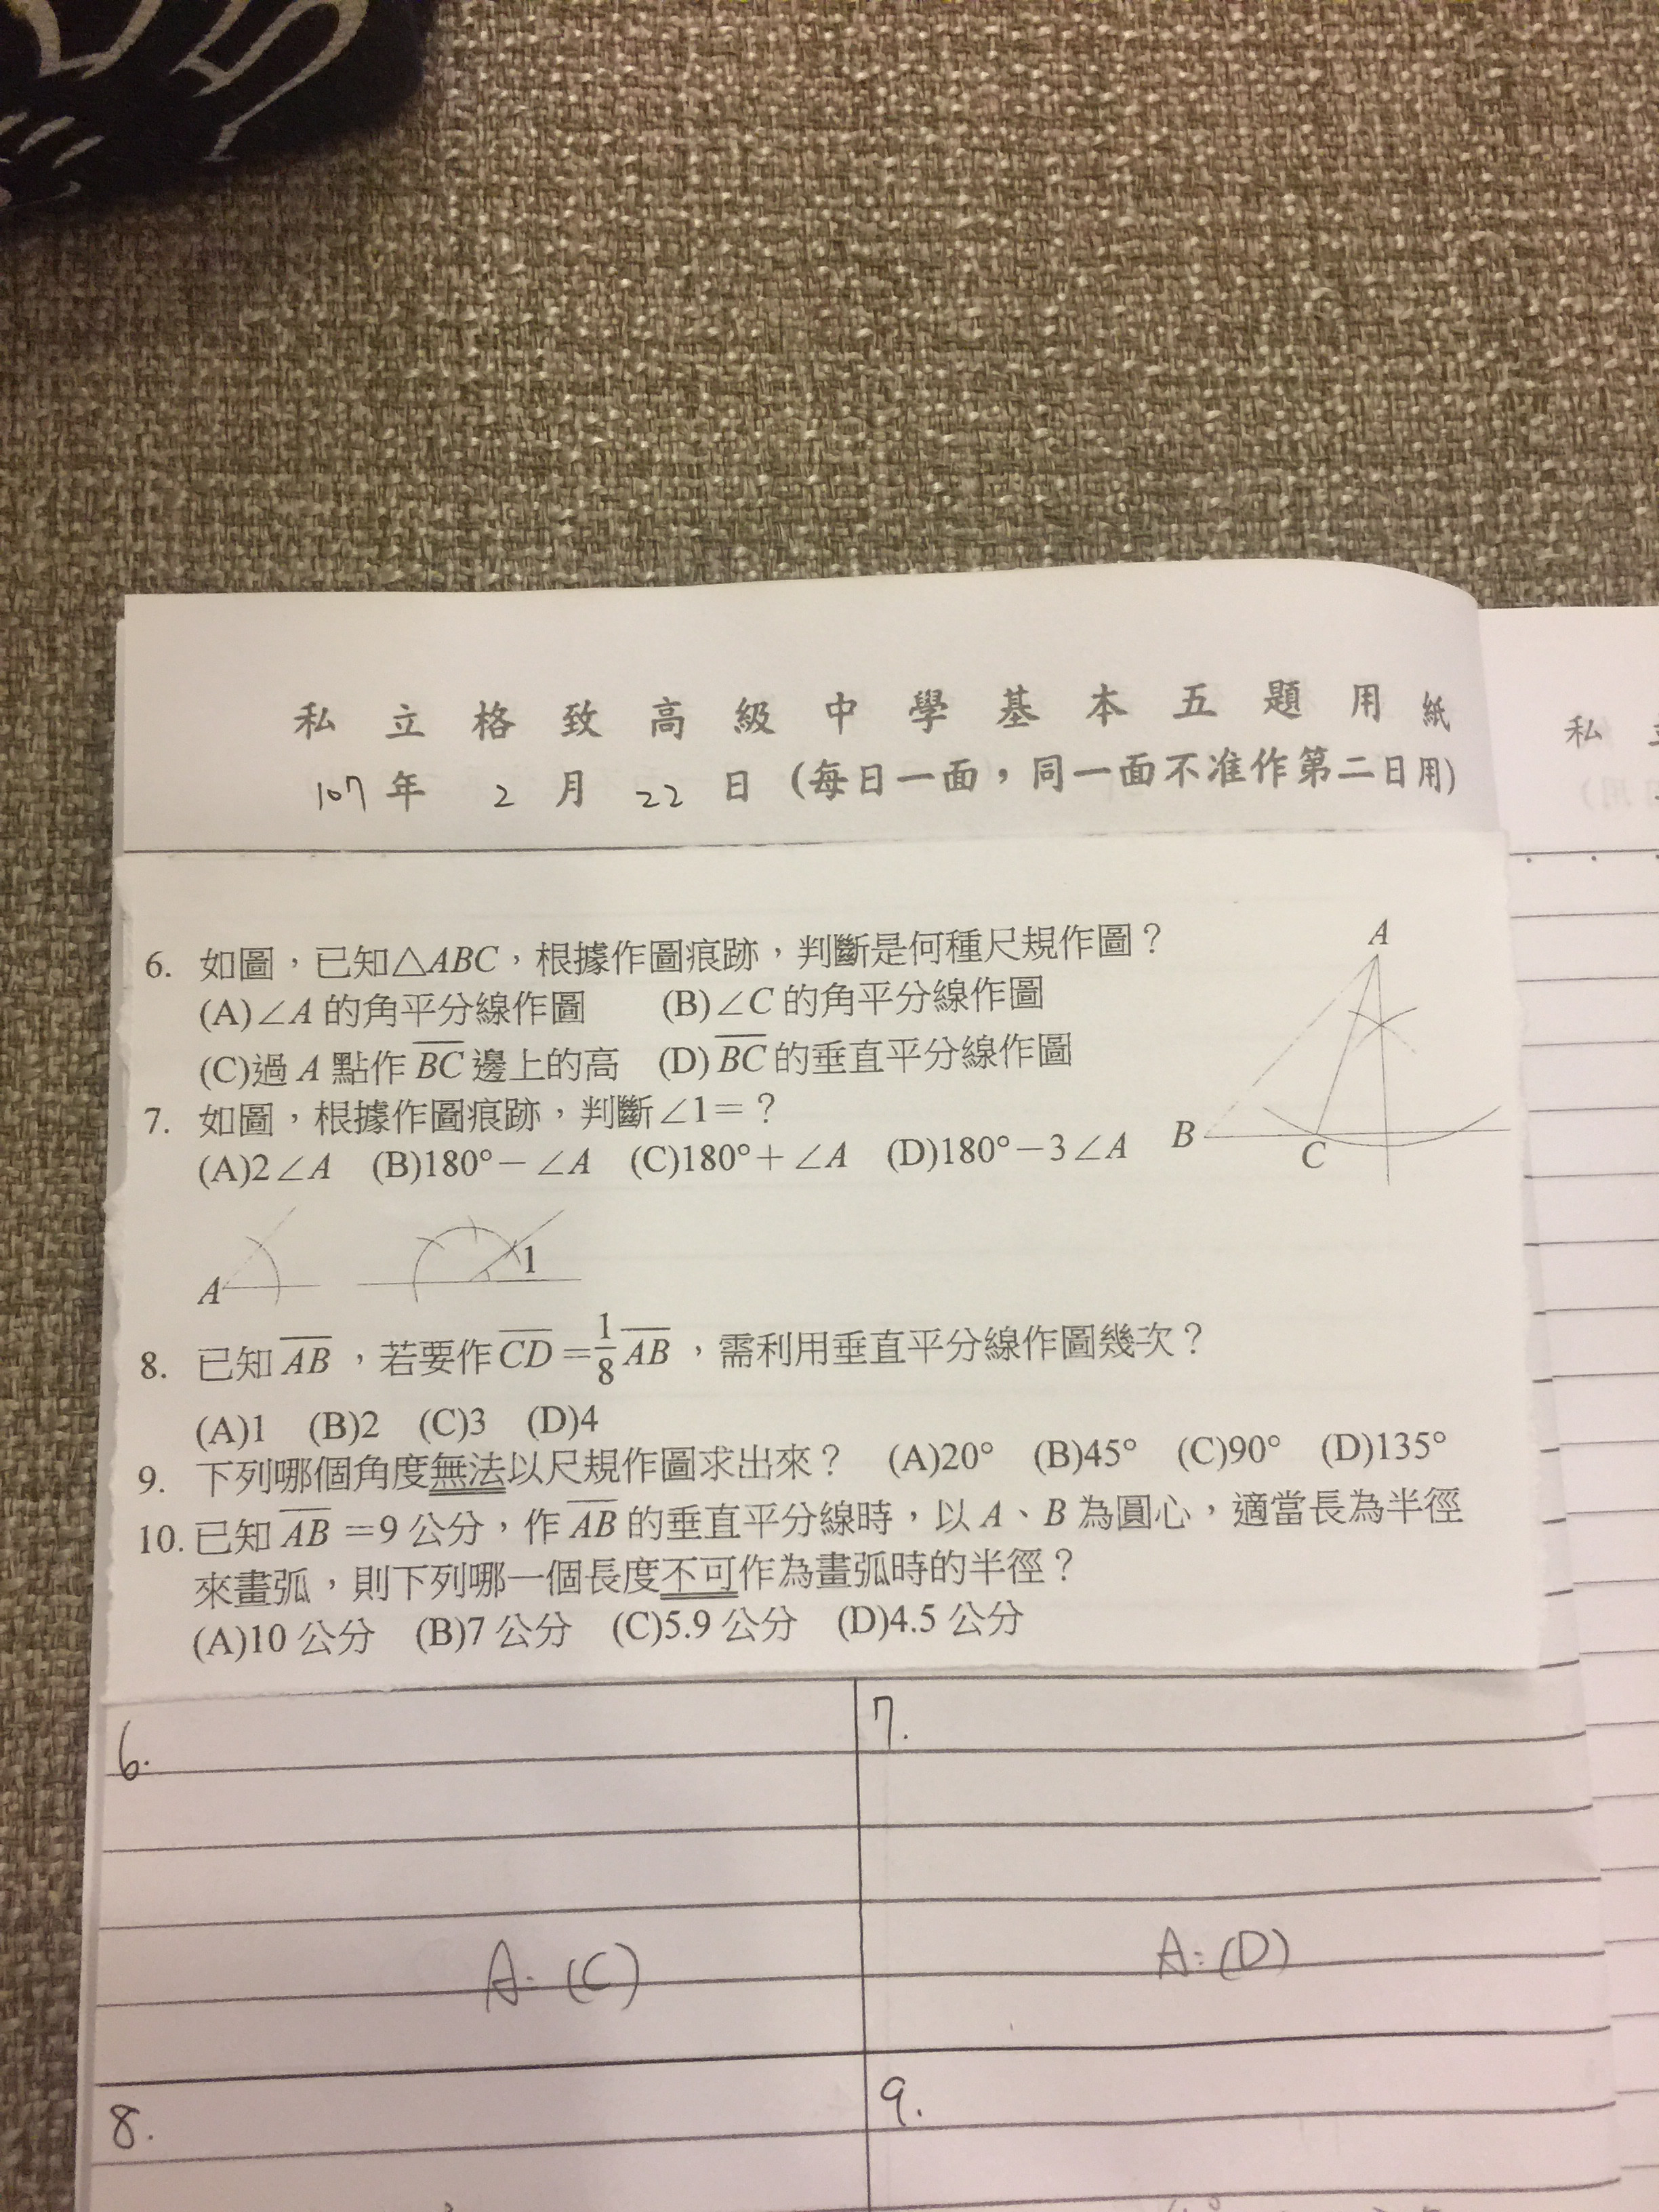 私立格致高級中學基本五題用紙
107年 2月 22日(每日一面，同一面不准作第二日用)
私
6. 如圖，已知△ABC，根據作圖痕跡，判斷是何種尺規作圖？
(A)∠A 的角平分線作圖 (B)∠C 的角平分線作圖
(C)過 A 點作 BC 邊上的高 (D) BC 的垂直平分線作圖
A
B
C
7. 如圖，根據作圖痕跡，判斷∠1＝？
(A)2∠A (B)180°－∠A (C)180°＋∠A (D)180°－3∠A
A
1
8. 已知 AB ，若要作 CD ＝1/8 AB ，需利用垂直平分線作圖幾次？
(A)1 (B)2 (C)3 (D)4
9. 下列哪個角度無法以尺規作圖求出來？ (A)20° (B)45° (C)90° (D)135°
10. 已知 AB ＝9 公分，作 AB 的垂直平分線時，以 A、B 為圓心，適當長為半徑
來畫弧，則下列哪一個長度不可作為畫弧時的半徑？
(A)10 公分 (B)7 公分 (C)5.9 公分 (D)4.5 公分
6.
7.
A: (C)
A: (D)
8.
9.